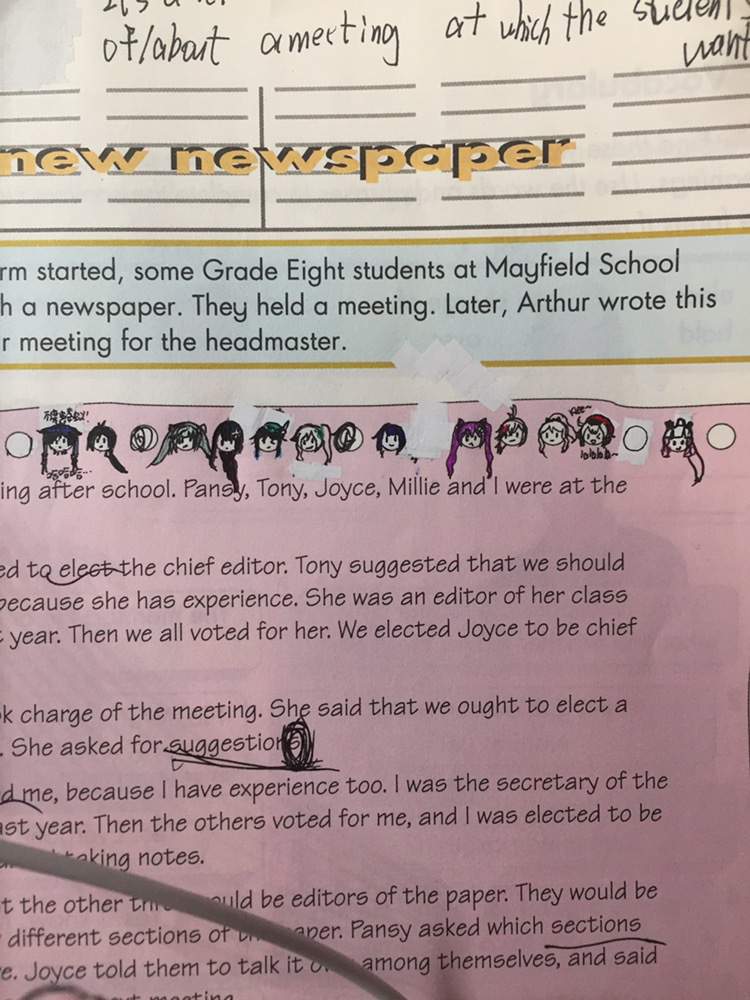 of/about a meeting at which the students
want
new newspaper
rm started, some Grade Eight students at Mayfield School
h a newspaper. They held a meeting. Later, Arthur wrote this
r meeting for the headmaster.
ing after school. Pansy, Tony, Joyce, Millie and I were at the
ed to elect the chief editor. Tony suggested that we should
because she has experience. She was an editor of her class
year. Then we all voted for her. We elected Joyce to be chief
k charge of the meeting. She said that we ought to elect a
. She asked for suggestion
d me, because I have experience too. I was the secretary of the
ast year. Then the others voted for me, and I was elected to be
taking notes.
t the other would be editors of the paper. They would be
different sections of paper. Pansy asked which sections
e. Joyce told them to talk it among themselves, and said
meeting